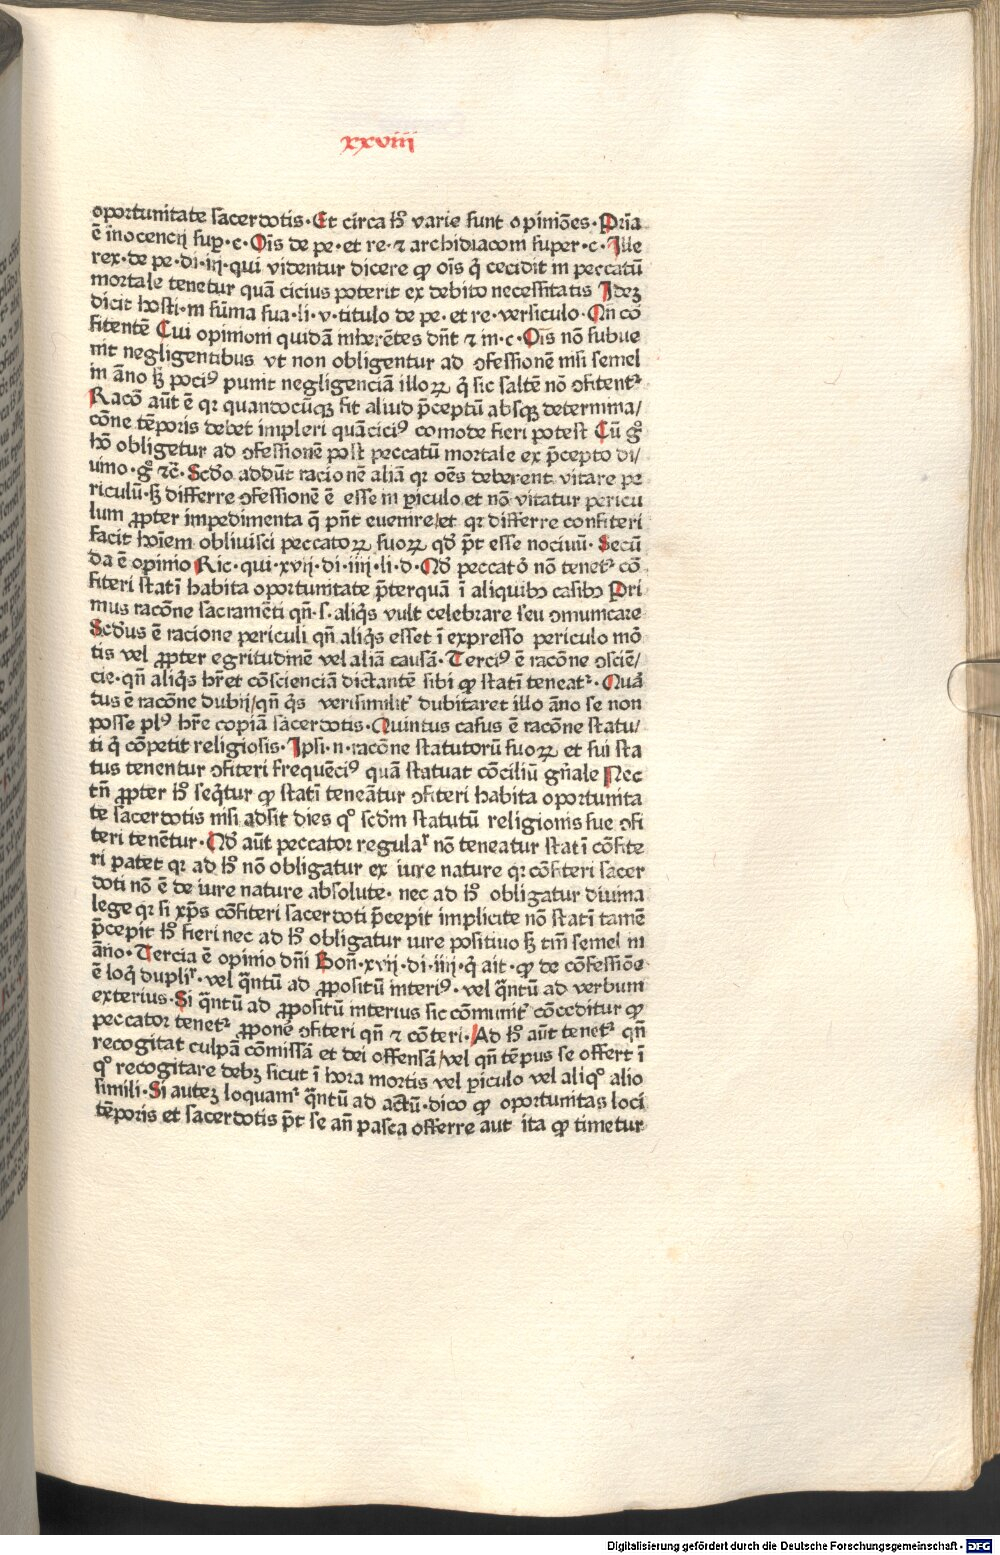 xxviii
oportunitate sacerdotis· Et circa hͦ varie sunt opiniões· Pͥma
ē inocencij suꝑ·c· Oīs de pe· et re· ⁊ archidiaconi super·c· Ille
rex· de pe·di·iij· qui videntur dicere ꝙ oīs q̇ cecidit in peccatū
mortale tenetur quā cicius poterit ex debito necessitatis Ideꝫ
dicit hosti·in sūma sua·li·v·titulo de pe· et re·versiculo· Qn̄ cō
fitentē Cui opinioni quidā inherētes dn̄t ⁊ in·c· Oīs nō subue
nit negligentibus vt non obligentur ad ɔfessionē nisi semel
in āno sꝫ pociꝰ punit negligenciā illoꝝ q̇ sic saltē nō ɔfitentᷣ
Racō aūt ē qꝛ quandocūqꝫ fit aliud p̄ceptū absqꝫ determina/
cōne tēporis debet impleri quāciciꝰ comode fieri potest Cū gͦ
hō obligetur ad ɔfessionē post peccatū mortale ex p̄cepto di/
uino· gͦ ⁊c̄· Scd̄o addūt racionē aliā qꝛ oēs deberent vitare pe
riculū· sꝫ differre ɔfessionē ē esse in ꝑiculo et nō vitatur pericu
lum ꝓpter impedimenta q̄ pn̄t euenire/et qꝛ differre confiteri
facit hoīem obliuisci peccatoꝝ suoꝝ qd̄ pt̄ esse nociuū· Secū
da ē opinio Ric· qui·xvij·di·iiij·li·d· Qd̄ peccatō nō tenetᷣ cō
fiteri statī habita oportunitate p̄terquā ī aliquibꝰ casibꝰ Pri
mus racōne sacramēti qn̄·s·aliq̇s vult celebrare seu ɔmunicare
Scd̄us ē racione periculi qn̄ aliq̇s esset ī expresso periculo mō
tis vel ꝓpter egritudinē vel aliā causā· Terciꝰ ē racōne ɔsciē/
cie· qn̄ aliq̇s hr̄et cōscienciā dictantē sibi ꝙ statī teneatᷣ· Quͣ
tus ē racōne dubij/qn̄ q̇s verisimilitͬ dubitaret illo āno se non
posse plꝰ hr̄e copiā sacerdotis· Quintus casus ē racōne statu/
ti q̇ cōpetit religiosis· Ipsi·n·racōne statutorū suoꝝ et sui sta
tus tenentur ɔfiteri frequēciꝰ quā statuat cōciliū gn̄ale Nec
tn̄ ꝓpter hͦ seq̇tur ꝙ statī teneātur ɔfiteri habita oportunita
te sacerdotis nisi adsit dies qͦ scd̄m statutū religionis sue ɔfi
teri tenētur· Qd̄ aūt peccator regulaͬ nō teneatur statī cōfite
ri patet qꝛ ad hͦ nō obligatur ex iure nature qꝛ cōfiteri sacer
doti nō ē de iure nature absolute· nec ad hͦ obligatur diuina
lege qꝛ si xp̄s cōfiteri sacerdoti p̄cepit implicite nō statī tamē
p̄cepit hͦ fieri nec ad hͦ obligatur iure positiuo sꝫ tm̄ semel in
āno· Tercia ē opinio dn̄i Bon̄·xvij·di·iiij·q̇ ait· ꝙ de cōfessiōe
ē loq̇ dupliͬ· vel q̄ntū ad ꝓpositū interiꝰ· vel q̄ntū ad verbum
exterius· Si q̄ntū ad ꝓpositū interius sic cōmunitͬ cōceditur ꝙ
peccator tenetᷣ ꝓponē ɔfiteri qn̄ ⁊ cōteri· Ad hͦ aūt tenetᷣ qn̄
recogitat culpā cōmissā et dei offensā/vel qn̄ tēpus se offert ī
qͦ recogitare debꝫ sicut ī hora mortis vel ꝑiculo vel aliqͦ alio
simili· Si auteꝫ loquamͬ q̄ntū ad actū· dico ꝙ oportunitas loci
tēporis et sacerdotis pt̄ se an̄ pasca offerre aut ita ꝙ timetur
Digitalisierung gefördert durch die Deutsche Forschungsgemeinschaft - DFG